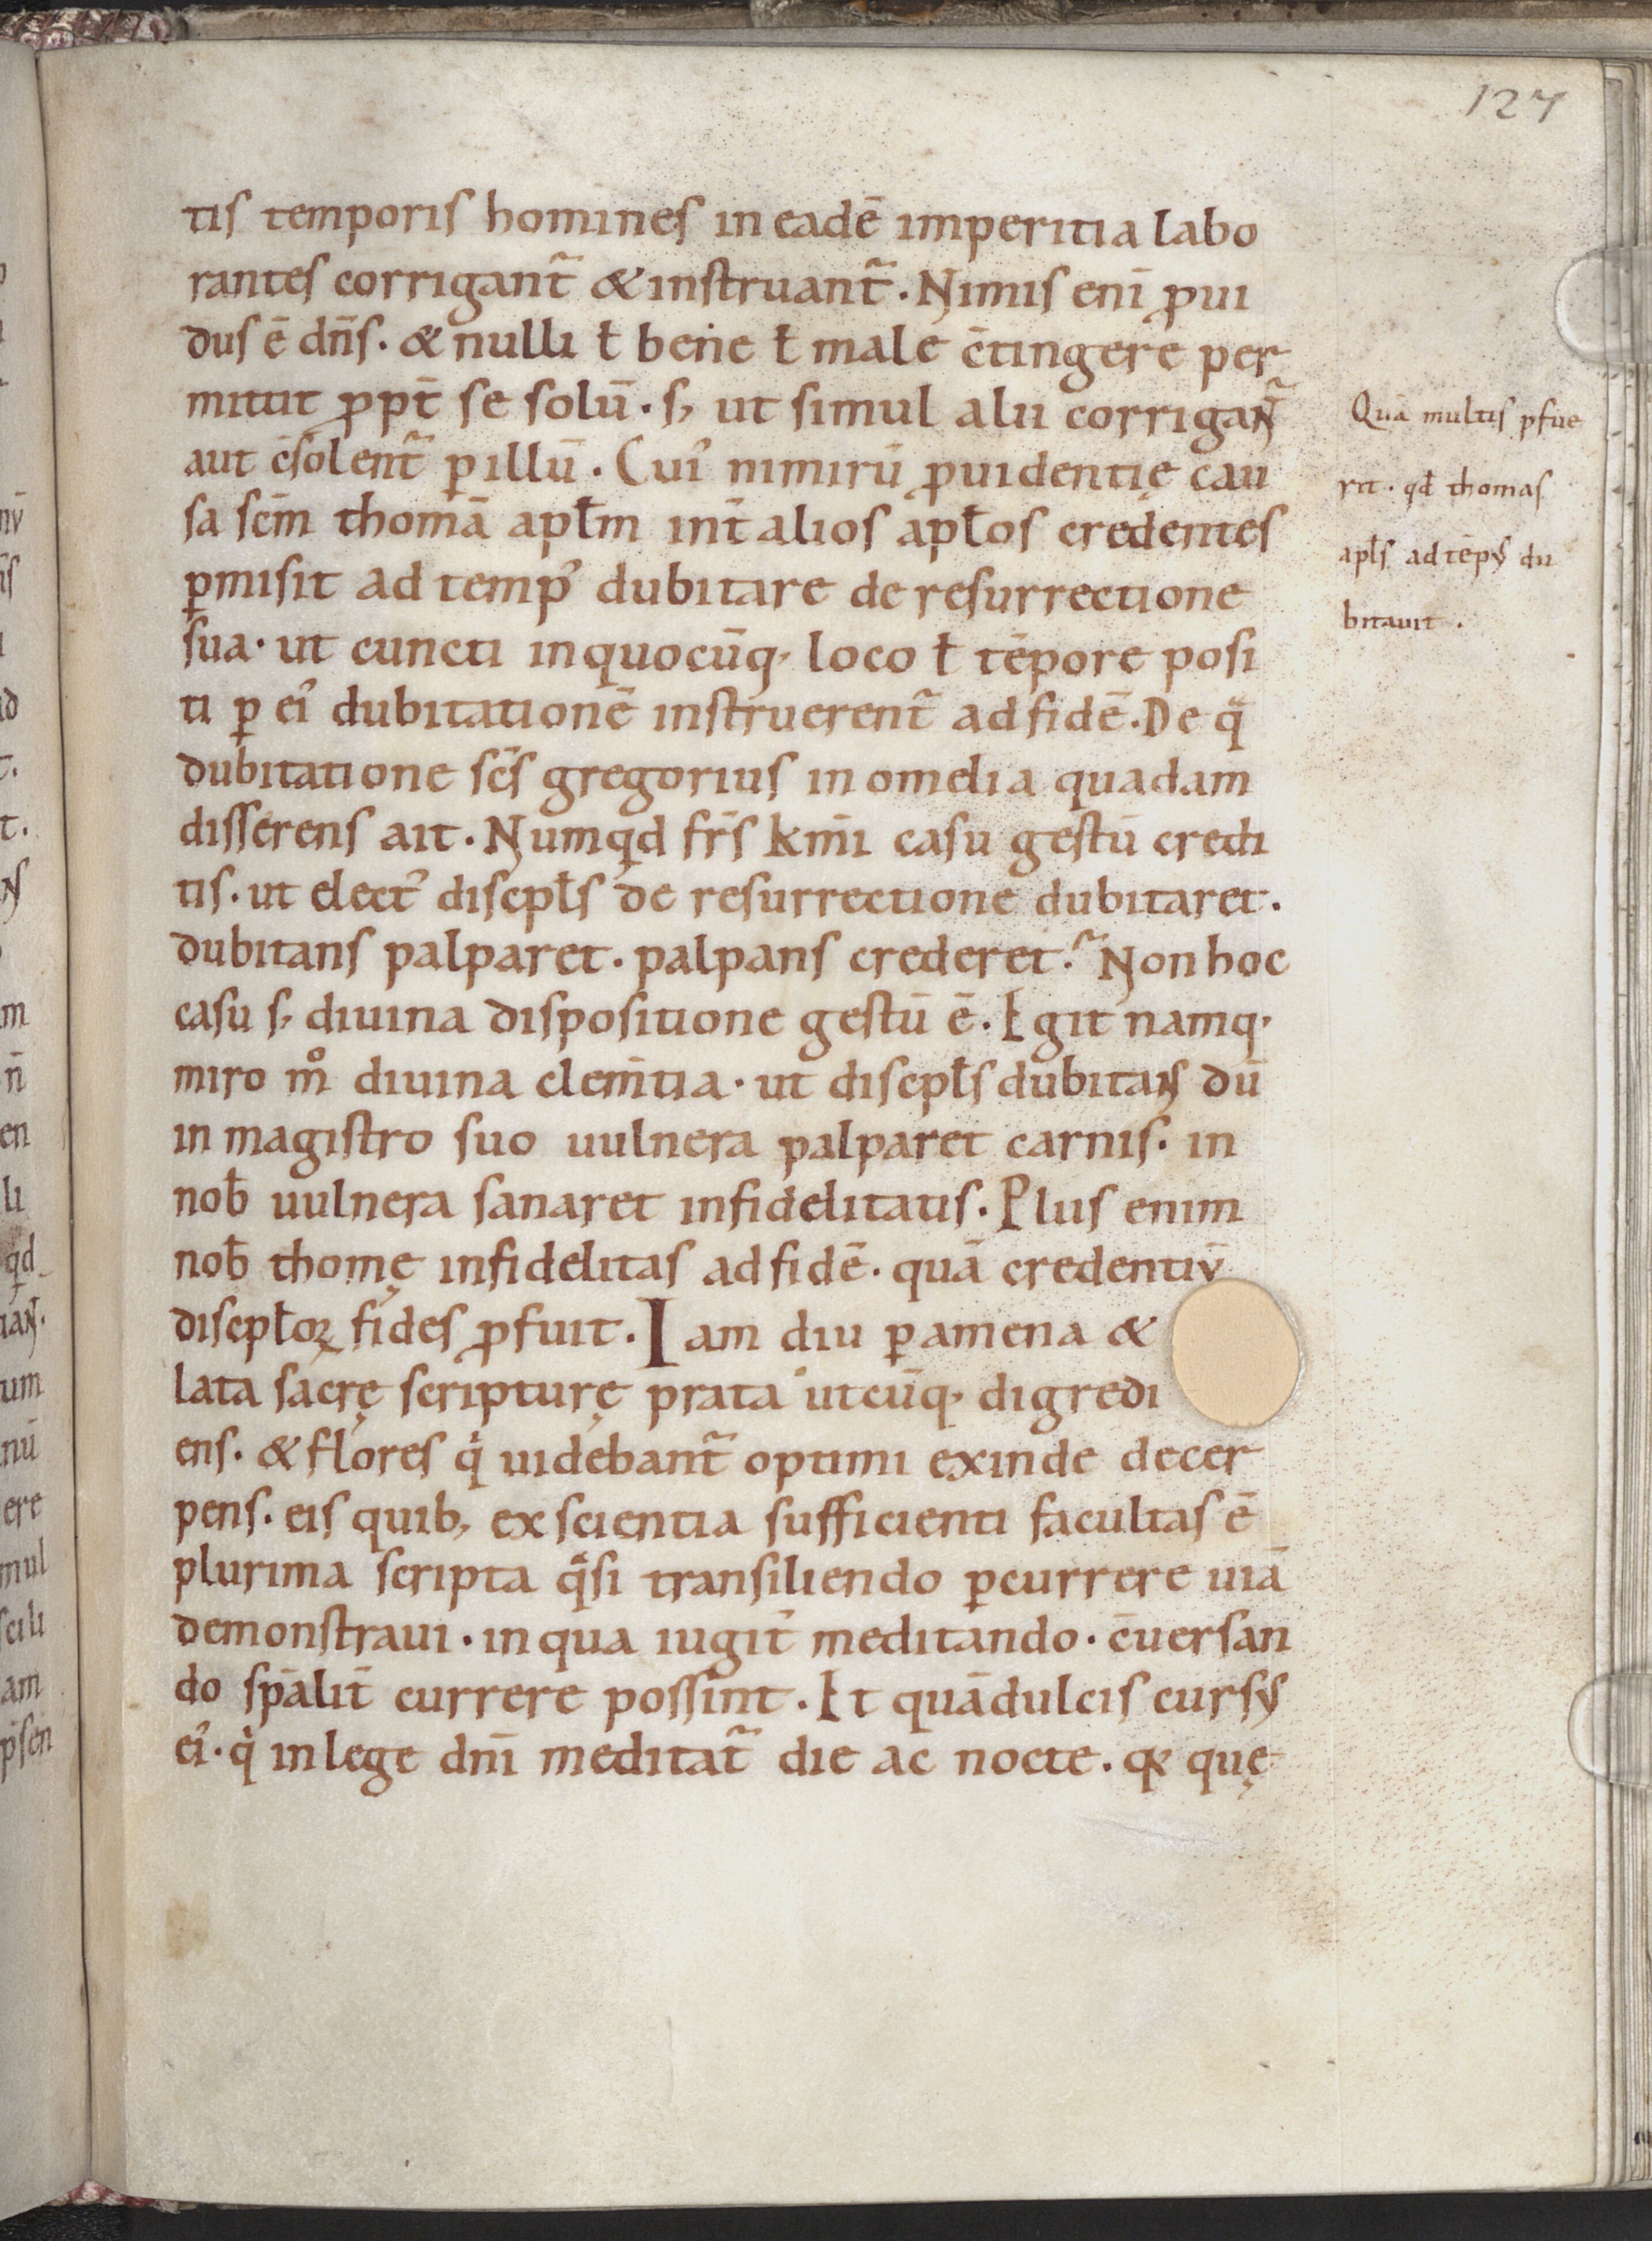 127
tis temporis homines in eadē imperitia labo
rantes corrigant̃ & instruant̃. Nimis enī ꝓui
dus ē dn̄s. & nulli ł bene ł male c̄tingere per
mittit ꝓpt̄ se solū. s; ut simul alii corrigant̃
aut c̄solent̃ ꝑ illū. Cuiꝰ nimirū ꝓuidentię cau
sa sc̄m thomā apłm int̄ alios apłos credentes
ꝑmisit ad tempꝰ dubitare de resurrectione
sua. ut cuncti in quocūq; loco ł tēpore posi
ti ꝑ eiꝰ dubitationē instruerent̃ ad fidē. De qͣ
dubitatione sc̄s gregorius in omelia quadam
disserens ait. Numqͥd fr̄s km̄i casu gestū credi
tis. ut electꝰ discipłs de resurrectione dubitaret.
dubitans palparet. palpans crederet? Non hoc
casu s; diuina dispositione gestū ē. Egit namq;
miro mͦ diuina clem̄tia. ut discipłs dubitans dū
in magistro suo uulnera palparet carnis. in
nob̄ uulnera sanaret infidelitatis. Plus enim
nob̄ thomę infidelitas ad fidē. quā credentiū
discipłoꝝ fides ꝓfuit. Iam diu ꝑ amena &
lata sacrę scripturę prata utcūq; digredi
ens. & flores qͥ uidebant̃ optimi exinde decer
pens. eis quib; ex scientia sufficienti facultas ē
plurima scripta qͣsi transiliendo ꝑcurrere uiā
demonstraui. in qua iugit̄ meditando. c̄uersan
do sp̄alit̄ currere possint. Et quā dulcis cursus
eiꝰ. qͥ in lege dn̄i meditat̃ die ac nocte. qͣ quę
Quā multis ꝓfue
rit. qd̄ thomas
apłs ad tēpus du
bitauit.